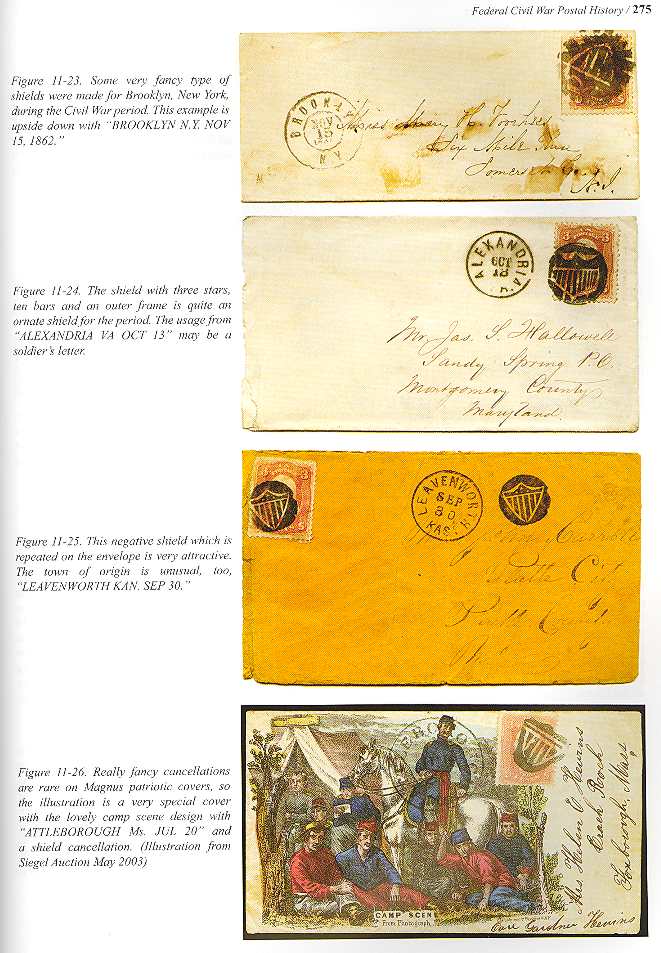 Federal Civil War Postal History / 275
Figure 11-23. Some very fancy type of
shields were made for Brooklyn, New York,
during the Civil War period. This example is
upside down with "BROOKLYN N.Y. NOV
15, 1862."
BROOKLYN
NOV
15
N.Y.
Miss Mary H. Voorhees
Six Mile Run
Somerset Co.
N.J.
Figure 11-24. The shield with three stars,
ten bars and an outer frame is quite an
ornate shield for the period. The usage from
"ALEXANDRIA VA OCT 13" may be a
soldier's letter.
ALEXANDRIA
OCT
13
3
3
Mr. Jas. S. Hallowell
Sandy Spring P.O.
Montgomery County
Maryland.
Figure 11-25. This negative shield which is
repeated on the envelope is very attractive.
The town of origin is unusual, too,
"LEAVENWORTH KAN. SEP 30."
3
3
LEAVENWORTH
SEP
30
KAS.
Platte City
Platte
Figure 11-26. Really fancy cancellations
are rare on Magnus patriotic covers, so
the illustration is a very special cover
with the lovely camp scene design with
"ATTLEBOROUGH Ms. JUL 20" and
a shield cancellation. (Illustration from
Siegel Auction May 2003)
CAMP SCENE
From Photograph
Mrs Helen E Nevins
Beach Rock
Foxborough, Mass
Care Gardner Nevins